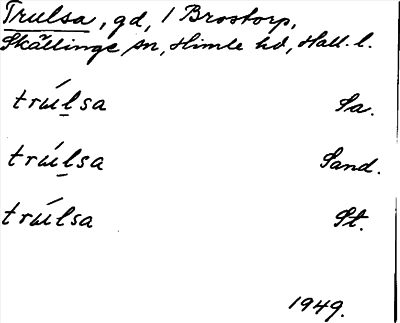 Trulsa, gd, 1 Brostorp,
Skällinge sn, Himle hd, Hall. l.
trúl̠sa Sa.
trúl̠sa Sand.
trúlsa St.
1949.